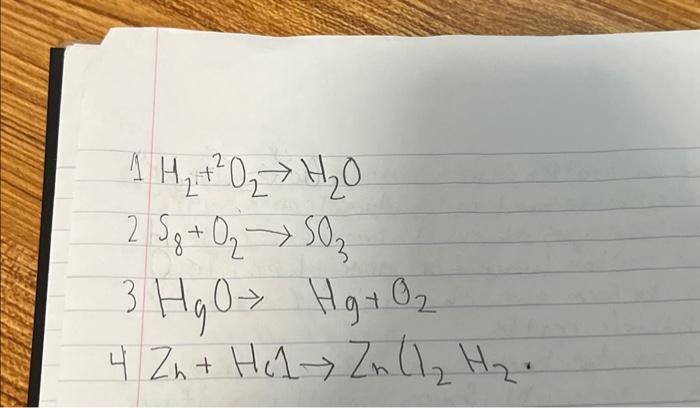 1 H₂+²O₂→H₂O
2 S₈+O₂→SO₃
3 HgO→ Hg+O₂
4 Zn+HCl→ZnCl₂ H₂.